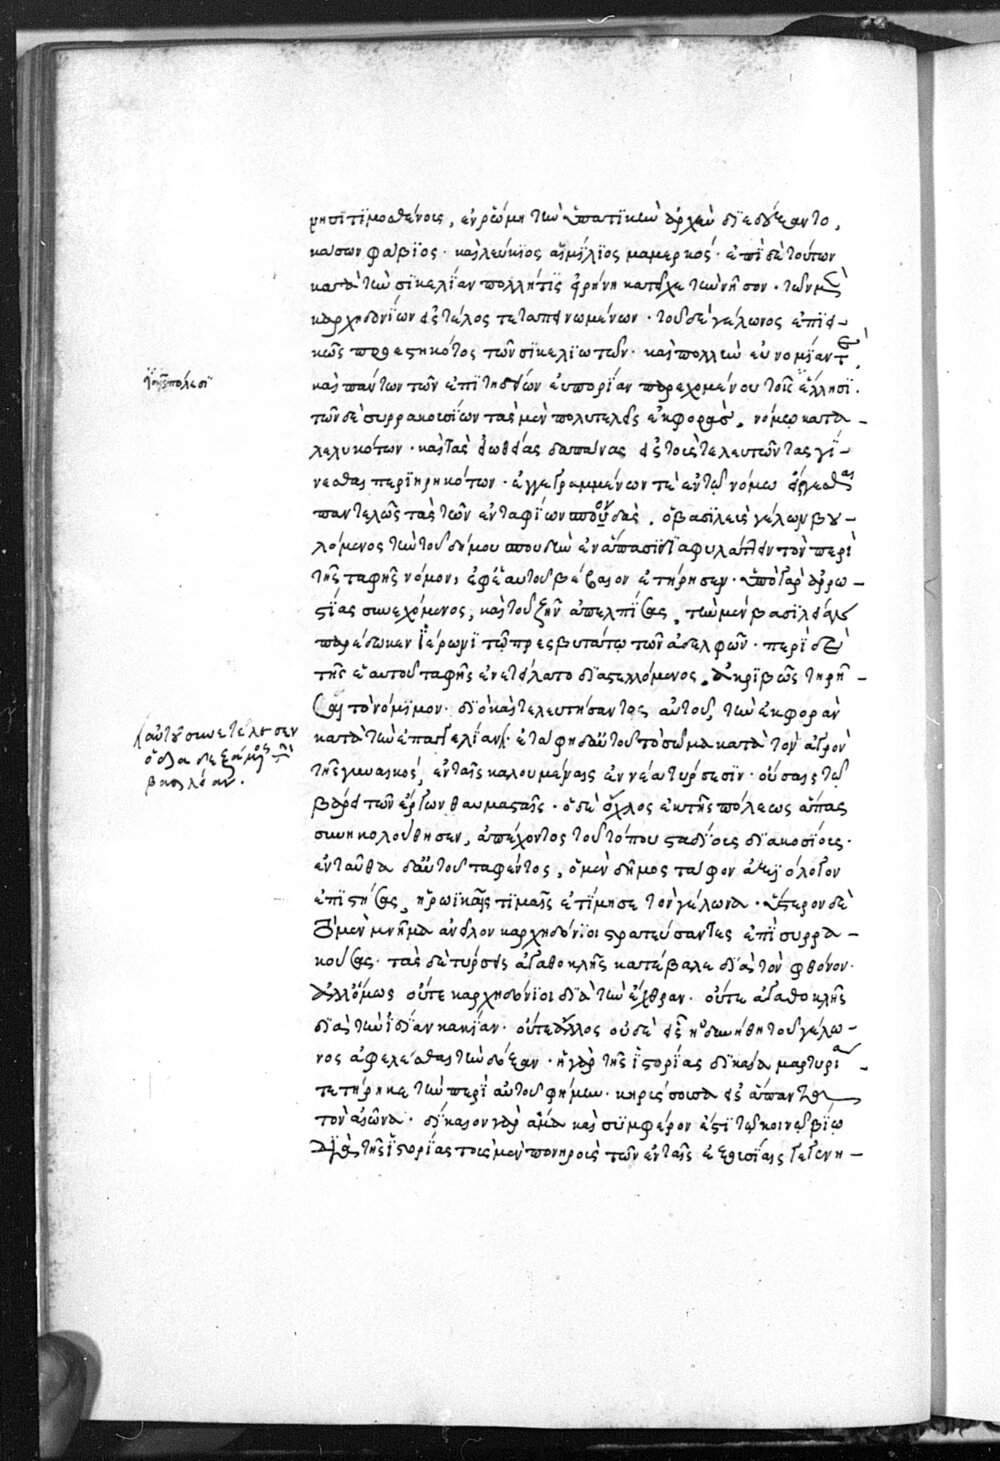 νησι τιμοσθένοις, ἐν ῥώμη τὴν ὑπατικὴν ἀρχὴν διεδέξαντο,
καίσων φάβιος· καὶ λεύκιος αἰμίλιος μάμερκος· ἐπὶ δὲ τούτων
κατὰ τὴν σικελίαν πολλή τις εἰρήνη κατεῖχε τὴν νῆσον· τῶν μὲν
καρχηδονίων εἰς τέλος τεταπεινωμένων· τοῦ δὲ γέλωνος ἐπιει-
κῶς προεστηκότος τῶν σικελιωτῶν· καὶ πολλὴν εὐνομίαν τε
ταῖς πόλεσι
καὶ πάντων τῶν ἐπιτηδείων εὐπορίαν παρεχομένου τοῖς ἕλλησι.
τῶν δὲ συρρακουσίων τὰς μὲν πολυτελεῖς ἐκφορὰς, νόμω κατα-
λελυκότων· καὶ τὰς εἰωθείας δαπάνας εἰς τοὺς τελευτῶντας γί-
νεσθαι περιηρηκότων· ἐγγεγραμμένων τὲ ἐν τῷ νόμω
παντελῶς τὰς τῶν ἐνταφίων σπουδὰς, ὁ βασιλεὺς γέλων βου-
λόμενος τὴν τοῦ δήμου σπουδὴν ἐν ἅπασι διαφυλάττειν τὸν περὶ
τῆς ταφῆς νόμον, ἐφ' ἑαυτοῦ βέβαιον ἐτήρησεν· ὑπὸ γὰρ ἀρρω-
στίας συνεχόμενος, καὶ τοῦ ζῆν ἀπελπίσας, τὴν μὲν βασιλείαν
παρέδωκεν ἱέρωνι τῷ πρεσβυτάτῳ τῶν ἀδελφῶν· περὶ δὲ
τῆς ἑαυτοῦ ταφῆς ἐνετείλατο διαστελλόμενος, ἀκριβῶς τηρῆ-
σαι τὸ νόμιμον· διὸ καὶ τελευτήσαντος αὐτοῦ, τὴν ἐκφορὰν
αὐτοῦ συνετέλεσεν
ὁ διαδεξάμενος τὴν
βασιλείαν.
κατὰ τὴν ἐπαγγελίαν· ἐτάφη δ' αὐτοῦ τὸ σῶμα κατὰ τὸν ἀγρὸν
τῆς γυναικός, ἐν ταῖς καλουμέναις ἐννέα τύρσεσιν· οὔσαις τῷ
βάρει τῶν ἔργων θαυμασταῖς· ὁ δὲ ὄχλος ἐκ τῆς πόλεως ἅπας
συνηκολούθησεν, ἀπέχοντος τοῦ τόπου σταδίους διακοσίους·
ἐνταῦθα δ' αὐτοῦ ταφέντος, ὁ μὲν δῆμος τάφον ἀξιόλογον
ἐπιστήσας, ἡρωϊκαῖς τιμαῖς ἐτίμησε τὸν γέλωνα· ὕστερον δὲ
τὸ μὲν μνῆμα ἀνεῖλον καρχηδόνιοι στρατεύσαντες ἐπὶ συρρα-
κούσας· τὰς δὲ τύρσεις ἀγαθοκλῆς κατέβαλε διὰ τὸν φθόνον·
ἀλλ' ὅμως οὔτε καρχηδόνιοι διὰ τὴν ἔχθραν· οὔτε ἀγαθοκλῆς
διὰ τὴν ἰδίαν κακίαν· οὔτε ἄλλος οὐδὲ εἷς ἠδυνήθη τοῦ γέλω-
νος ἀφελέσθαι τὴν δόξαν· ἡ γὰρ τῆς ἱστορίας δικαία μαρτυρία
τετήρηκε τὴν περὶ αὐτοῦ φήμην· κηρύσσουσα εἰς ἅπαντα
τὸν αἰῶνα· δίκαιον γὰρ ἅμα καὶ συμφέρον ἐστὶ τῷ κοινῷ βίω
διὰ τῆς ἱστορίας τοῖς μὲν πονηροῖς τῶν ἐν ταῖς ἐξουσίαις γεγενη-